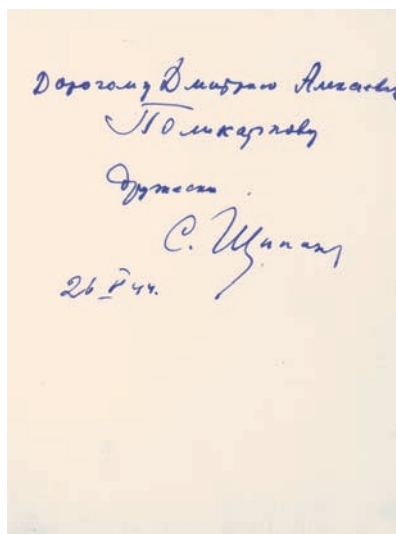 Дорогому Дмитрию Алексеевичу
Поликарпову
дружески
С. Щипач
26 V 44.